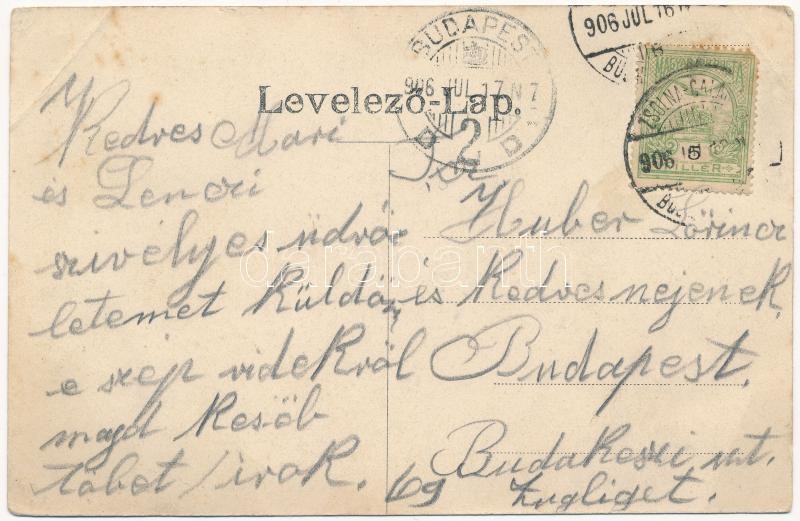 906 JUL 16
BUDAPEST
906 JUL 17 N 7
2
ZSOLNA-CA
906
5
FILLÉR
Levelező-Lap.
Kedves Mari
és Lenczi
szivélyes üdvöz
letemet küldöm
e szép videkről
majd késöb
töbet irok.
Huber Lörincz
és Kedves nejenek
Budapest.
Budakeszi ut.
69 Zugliget.
darabanth